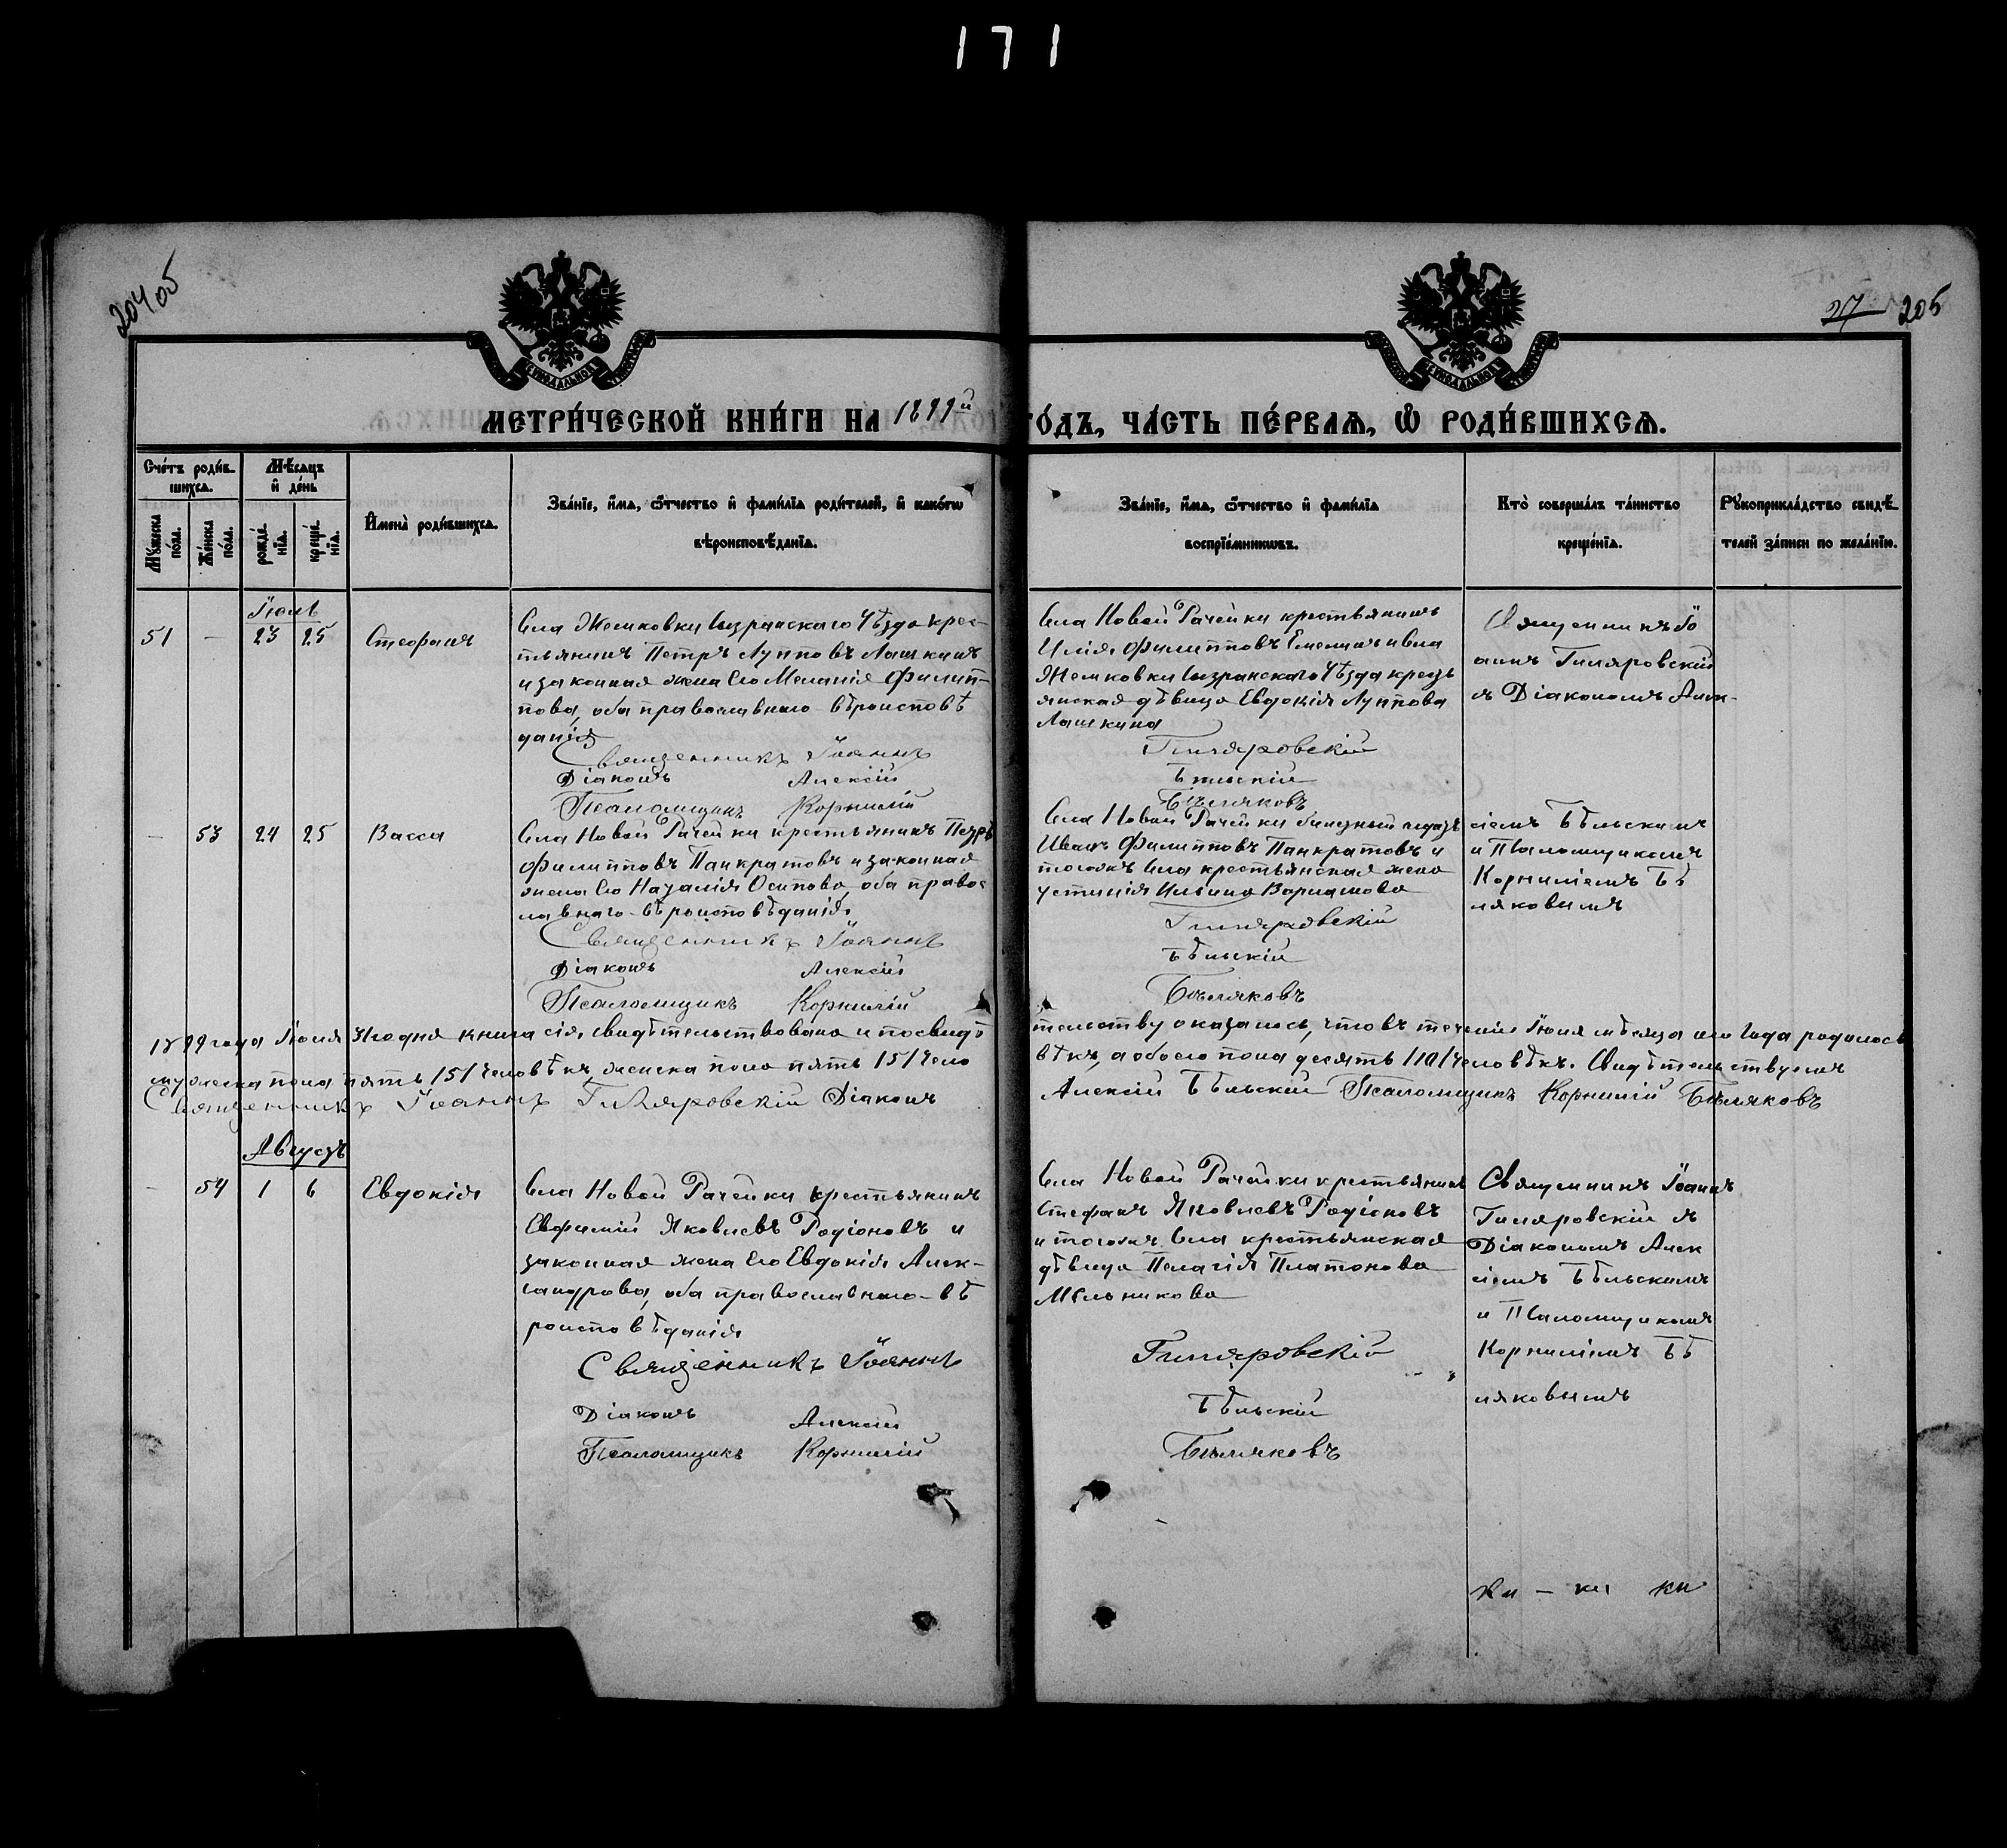 171
204 об
27 205
МЕТРИ́ЧЕСКОЙ КНИ́ГИ НА 1899й ГО́ДЪ, ЧА́СТЬ ПЕ́РВАѦ, Ѿ РОДИ́ВШИХСѦ.
Сче́тъ роди́в-
шихсѧ.
Мѣ́сѧцъ
и҆ де́нь
Мꙋ́жеска
по́ла.
Же́нска
по́ла.
рожде́-
нїѧ.
креще́-
нїѧ.
И҆мена̀ роди́вшихсѧ.
Зва́нїе, и҆́мѧ, ѻ҆́тчество и҆ фамі́лїѧ роди́телей, и҆ како́гѡ
вѣроисповѣ́данїѧ.
Зва́нїе, и҆́мѧ, ѻ҆́тчество и҆ фамі́лїѧ
воспрїе́мникѡвъ.
Кто̀ соверша́лъ та́инство
креще́нїѧ.
Рꙋкоприкла́дство свидѣ́-
телей за́писи по жела́нїю.
Іюль
51 — 23 25 Стефанъ
Села Жемковки Сызранскаго Уѣзда крес-
тьянинъ Петръ Лупповъ Лашкинъ
и законная жена его Меланія Филип-
пова, оба православнаго вѣроисповѣ
данія
Священникъ Іоаннъ
Діаконъ Алексій
Псаломщикъ Корнилій
Села Новой Рачейки крестьянинъ
Илія Филипповъ Емелинъ и села
Жемковки Сызранскаго Уѣзда кресть
янская дѣвица Евдокія Луппова
Лашкина
Гиляровскій
Бѣльскій
Бѣляковъ
Священникъ Іо
аннъ Гиляровскій
съ Діакономъ Алек-
— 53 24 25 Васса
Села Новой Рачейки крестьянинъ Петръ
Филипповъ Панкратовъ и законная
жена его Наталія Осипова, оба правос
лавнаго вѣроисповѣданія.
Священникъ Іоаннъ
Діаконъ Алексій
Псаломщикъ Корнилій
Села Новой Рачейки
Иванъ Филипповъ Панкратовъ и
тогожъ села крестьянская жена
Устинія Ильина Варламова
Гиляровскій
Бѣльскій
Бѣляковъ
сіемъ Бѣльскимъ
и Псаломщикомъ
Корниліемъ Бѣ
ляковымъ
1899 года Іюля 31 го дня книга сія свидѣтельствована и по свидѣ
тельству оказалось, что въ теченіи Іюля мѣсяца сего года родилось
мужеска пола пять /5/ человѣкъ, женска пола пять /5/ чело
вѣкъ, а обоего пола десять /10/ человѣкъ. Свидѣтельствуемъ
Священникъ Іоаннъ Гиляровскій Діаконъ
Алексій Бѣльскій Псаломщикъ Корнилій Бѣляковъ
Августъ
— 54 1 6 Евдокія
Села Новой Рачейки крестьянинъ
Евфимій Яковлевъ Родіоновъ и
законная жена его Евдокія Алек-
сандрова, оба православнаго вѣ
роисповѣданія
Священникъ Іоаннъ
Діаконъ Алексій
Псаломщикъ Корнилій
Села Новой Рачейки крестьянинъ
Стефанъ Яковлевъ Родіоновъ
и тогожъ села крестьянская
дѣвица Пелагія Платонова
Мельникова
Гиляровскій
Бѣльскій
Бѣляковъ
Священникъ Іоаннъ
Гиляровскій съ
Діакономъ Алек
сіемъ Бѣльскимъ
и Псаломщикомъ
Корниліемъ Бѣ
ляковымъ